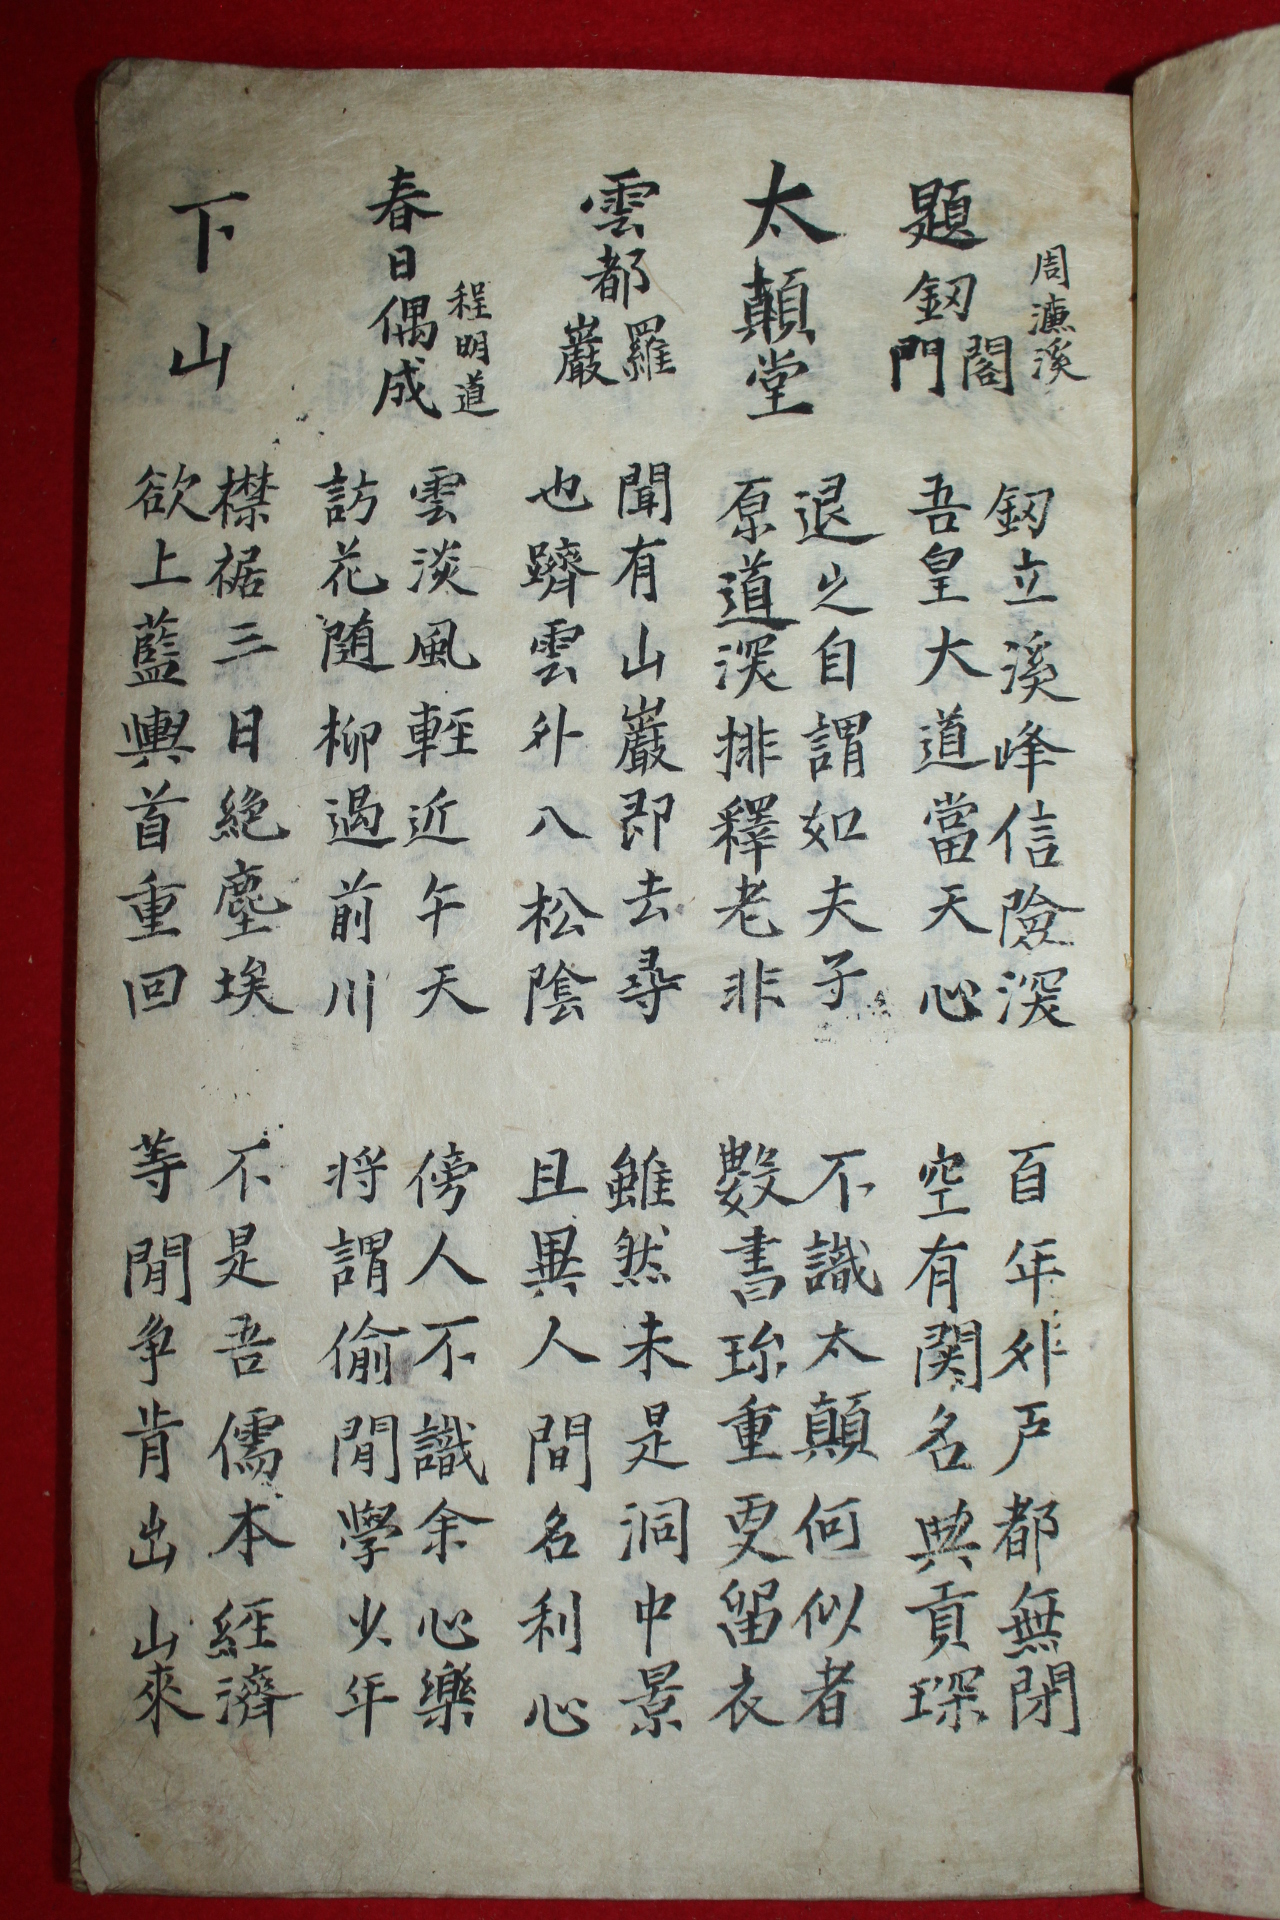 周濂溪
題釼閣門
釼立溪峰信險深
吾皇大道當天心
百年外戶都無閉
空有関名典貢琛
太顛堂
退之自謂如夫子
原道深排釋老非
不識太顛何似者
數書珎重更留衣
雲都羅巖
聞有山巖即去尋
也躋雲外入松陰
雖然未是洞中景
且異人間名利心
程明道
春日偶成
雲淡風輕近午天
訪花随柳過前川
傍人不識余心樂
将謂偷閒學少年
下山
襟裾三日絶塵埃
欲上藍輿首重回
不是吾儒本經濟
等閒争肯出山來